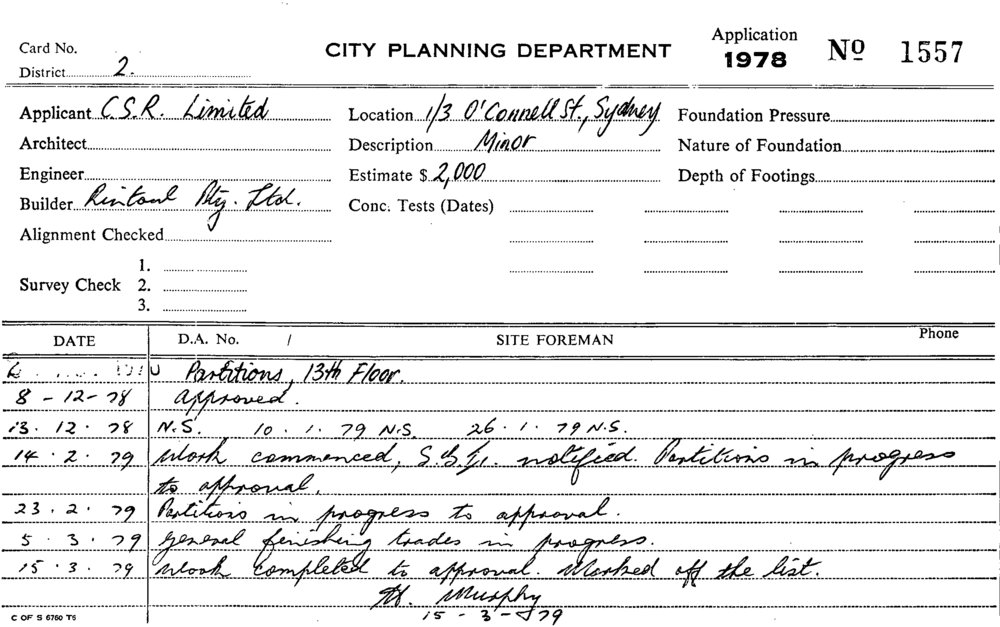 Card No.
District 2.
CITY PLANNING DEPARTMENT
Application
1978 Nº 1557
Applicant C.S.R. Limited
Architect
Engineer
Builder Rintoul Pty. Ltd.
Alignment Checked
Survey Check 1.
2.
3.
Location 1/3 O'Connell St., Sydney
Description Minor
Estimate $ 2,000
Conc. Tests (Dates)
Foundation Pressure
Nature of Foundation
Depth of Footings
DATE D.A. No. / SITE FOREMAN Phone
Partitions, 13th Floor.
8 - 12 - 78 Approved.
13 . 12 . 78 N.S. 10 . 1 . 79 N.S. 26 . 1 . 79 N.S.
14 . 2 . 79 Work commenced, notified. Partitions in progress
to approval.
23 . 2 . 79 Partitions in progress to approval.
5 . 3 . 79 General finishing trades in progress.
15 . 3 . 79 Work completed to approval. Marked off the list.
Murphy
15 - 3 - 79
C OF S 6760 T5